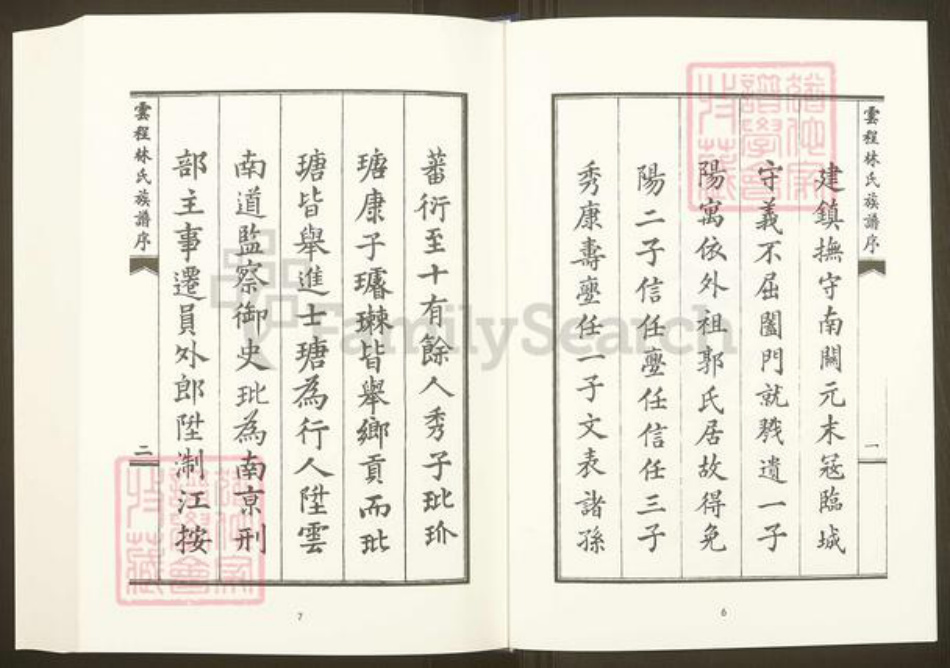 雲程林氏族譜序
一
建鎮撫守南關元末冦臨城
守義不屈闔門就戮遺一子
陽寓依外祖郭氏居故得免
陽二子信任壑任信任三子
秀康壽壑任一子文表諸孫
6
蕃衍至十有餘人秀子玭玠
瑭康子璩㻋皆舉鄉貢而玭
瑭皆舉進士瑭為行人陞雲
南道監察御史玭為南京刑
部主事遷員外郎陞淛江按
雲程林氏族譜序
二
7
FamilySearch